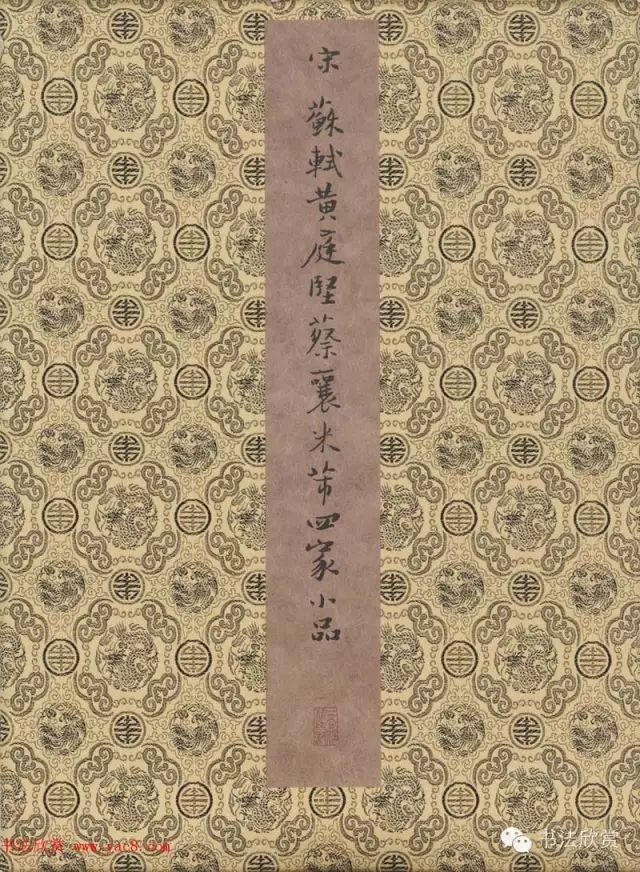 宋 蘇軾黄庭堅蔡襄米芾四家小品
书法欣赏 www.yac8.com
书法欣赏